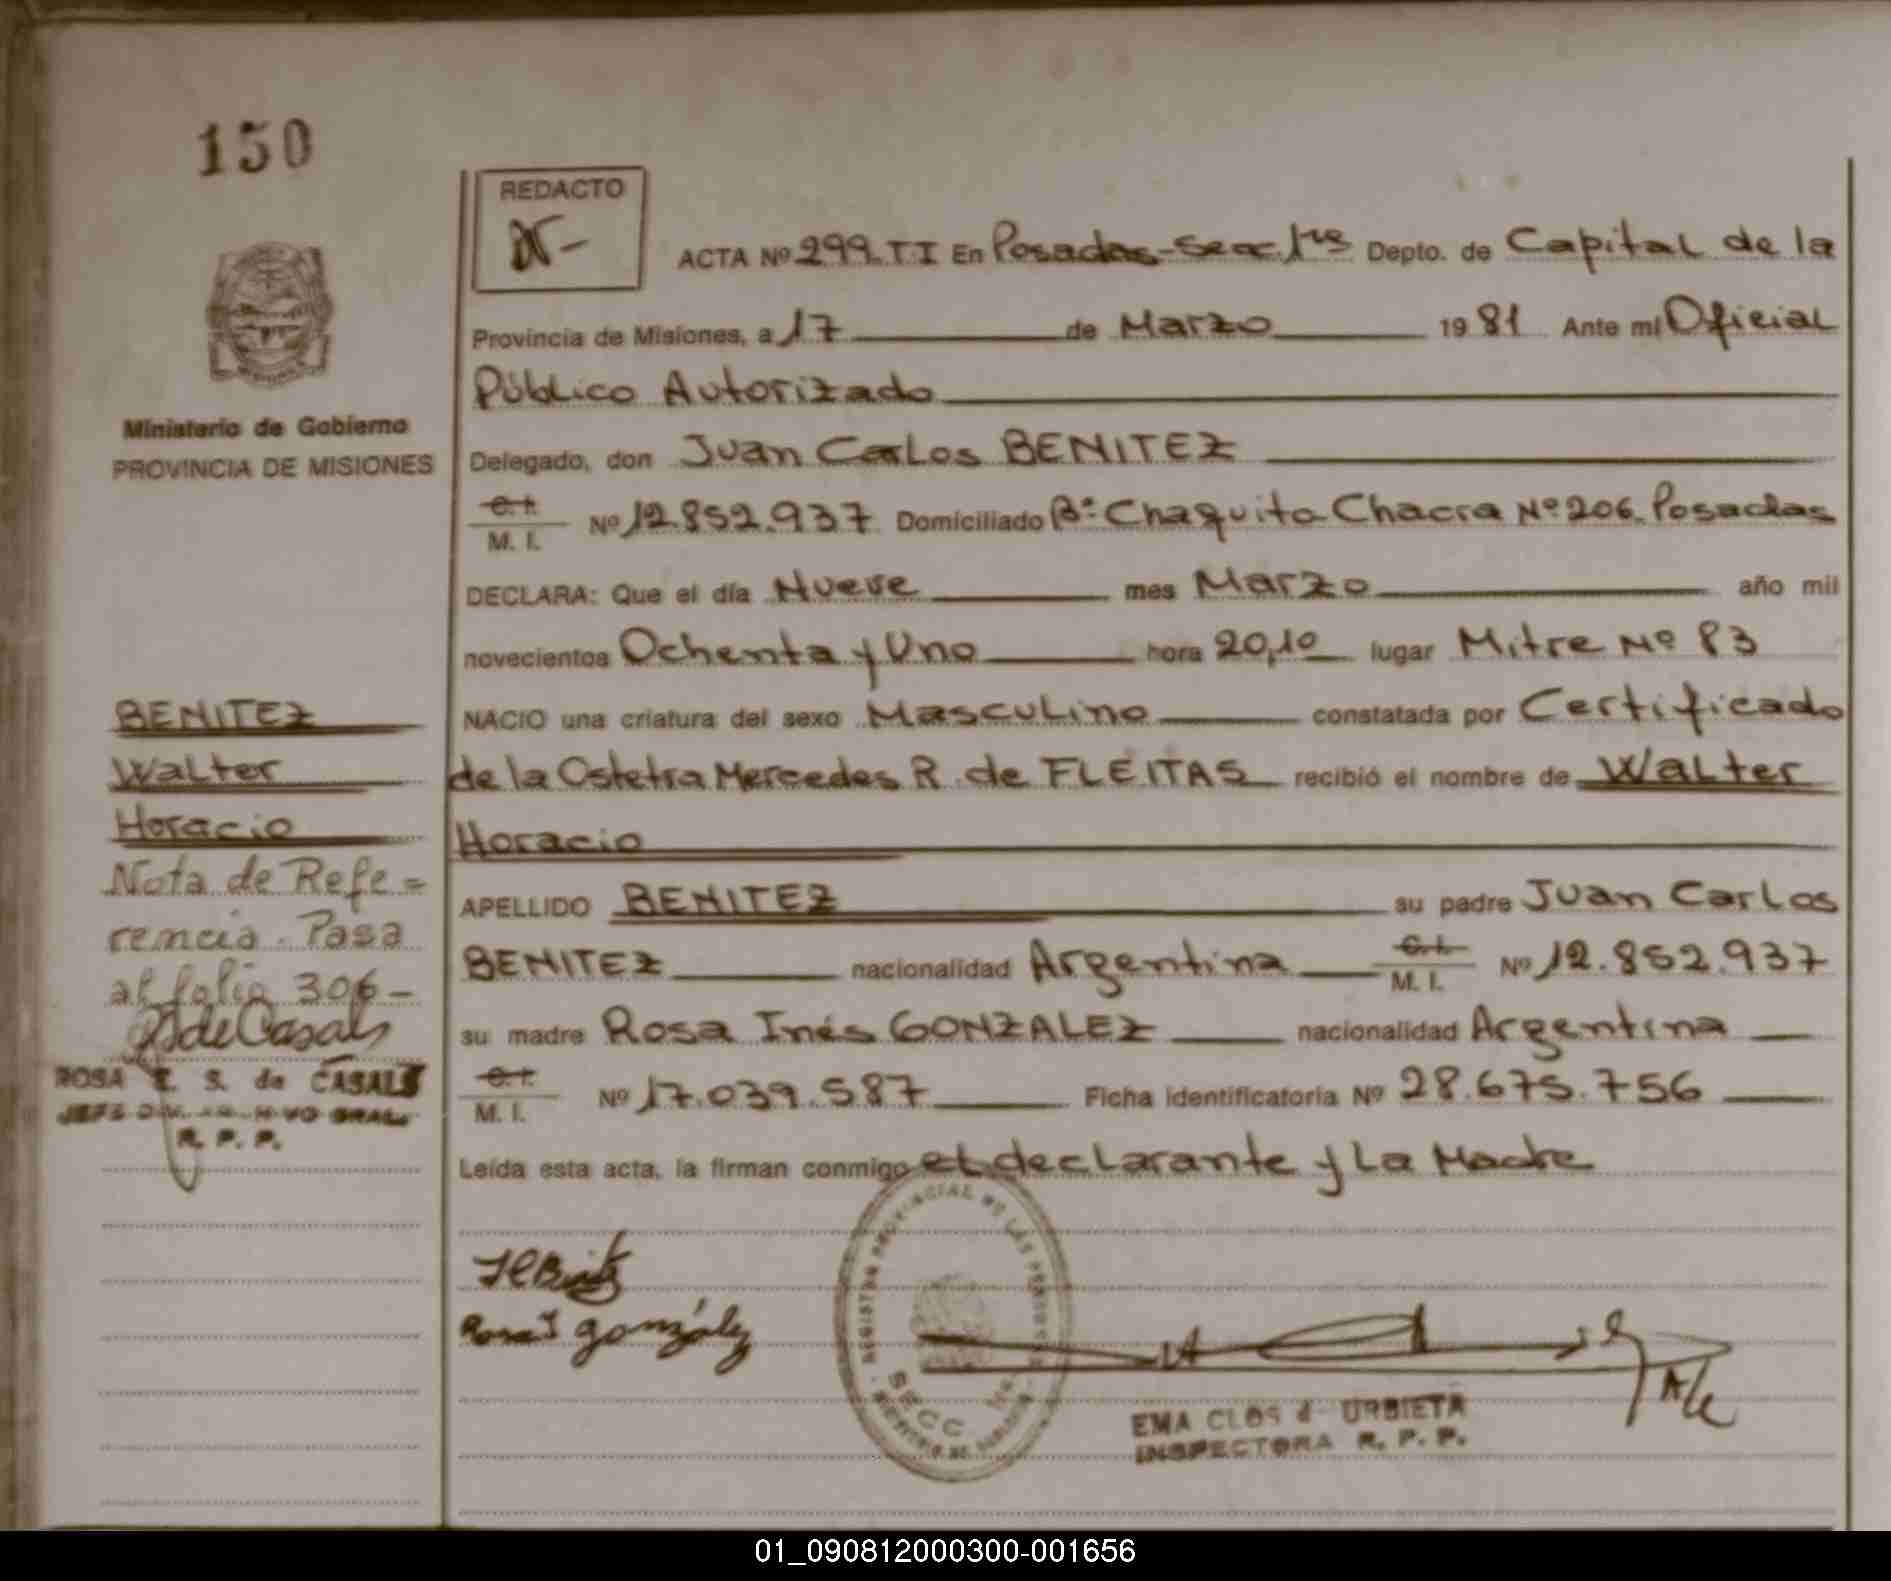 150
REDACTO
ACTA Nº 299. T I En Posadas-Secc. 1ra Depto. de Capital de la
Provincia de Misiones, a 17 de Marzo 1981 Ante mí Oficial
Público Autorizado
Ministerio de Gobierno
PROVINCIA DE MISIONES
Delegado, don Juan Carlos BENITEZ
C. I.
M. I. Nº 12.852.937 Domiciliado Bº Chaquito Chacra Nº 206. Posadas
DECLARA: Que el día Nueve mes Marzo año mil
novecientos Ochenta y Uno hora 20,10 lugar Mitre Nº 83
NACIO una criatura del sexo Masculino constatada por Certificado
de la Ostetra Mercedes R. de FLEITAS recibió el nombre de Walter
Horacio
APELLIDO BENITEZ su padre Juan Carlos
BENITEZ nacionalidad Argentina C. I. M. I. Nº 12.852.937
su madre Rosa Inés GONZALEZ nacionalidad Argentina
C. I.
M. I. Nº 17.039.587 Ficha identificatoria Nº 28.675.756
Leída esta acta, la firman conmigo el declarante y la Madre
BENITEZ
Walter
Horacio
Nota de Refe=
rencia. Pasa
al folio 306-
RdeCasals
ROSA E. S. de CASALS
JEFE DIV. ARCHIVO GRAL.
R. P. P.
González
REGISTRO PROVINCIAL DE LAS PERSONAS
SECC
EMA CLOS d URBIETA
INSPECTORA R. P. P.
01_090812000300-001656